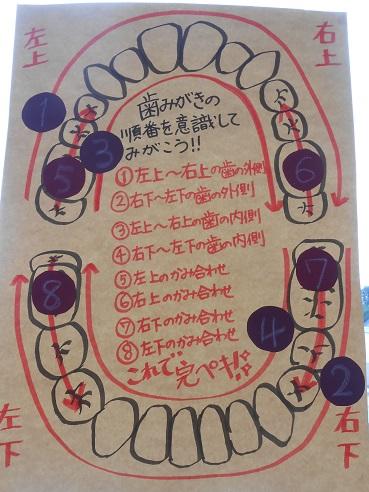 左上
右上
1
3
5
6
歯みがきの
順番を意識して
みがこう!!
①左上〜右上の歯の外側
②右下〜左下の歯の外側
③左上〜右上の歯の内側
④右下〜左下の歯の内側
⑤左上のかみ合わせ
⑥右上のかみ合わせ
⑦右下のかみ合わせ
⑧左下のかみ合わせ
これで完ペキ!!
8
7
4
2
左下
右下